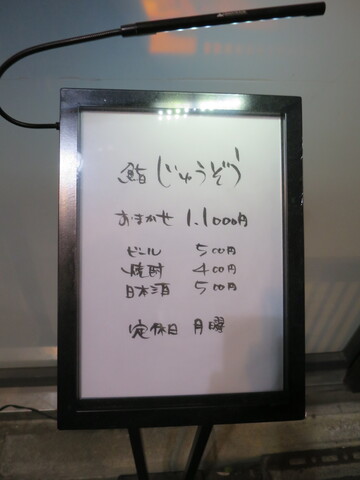 鮨 じゅうぞう
おまかせ 1.1000円
ビール 500円
焼酎 400円
日本酒 500円
定休日 月曜